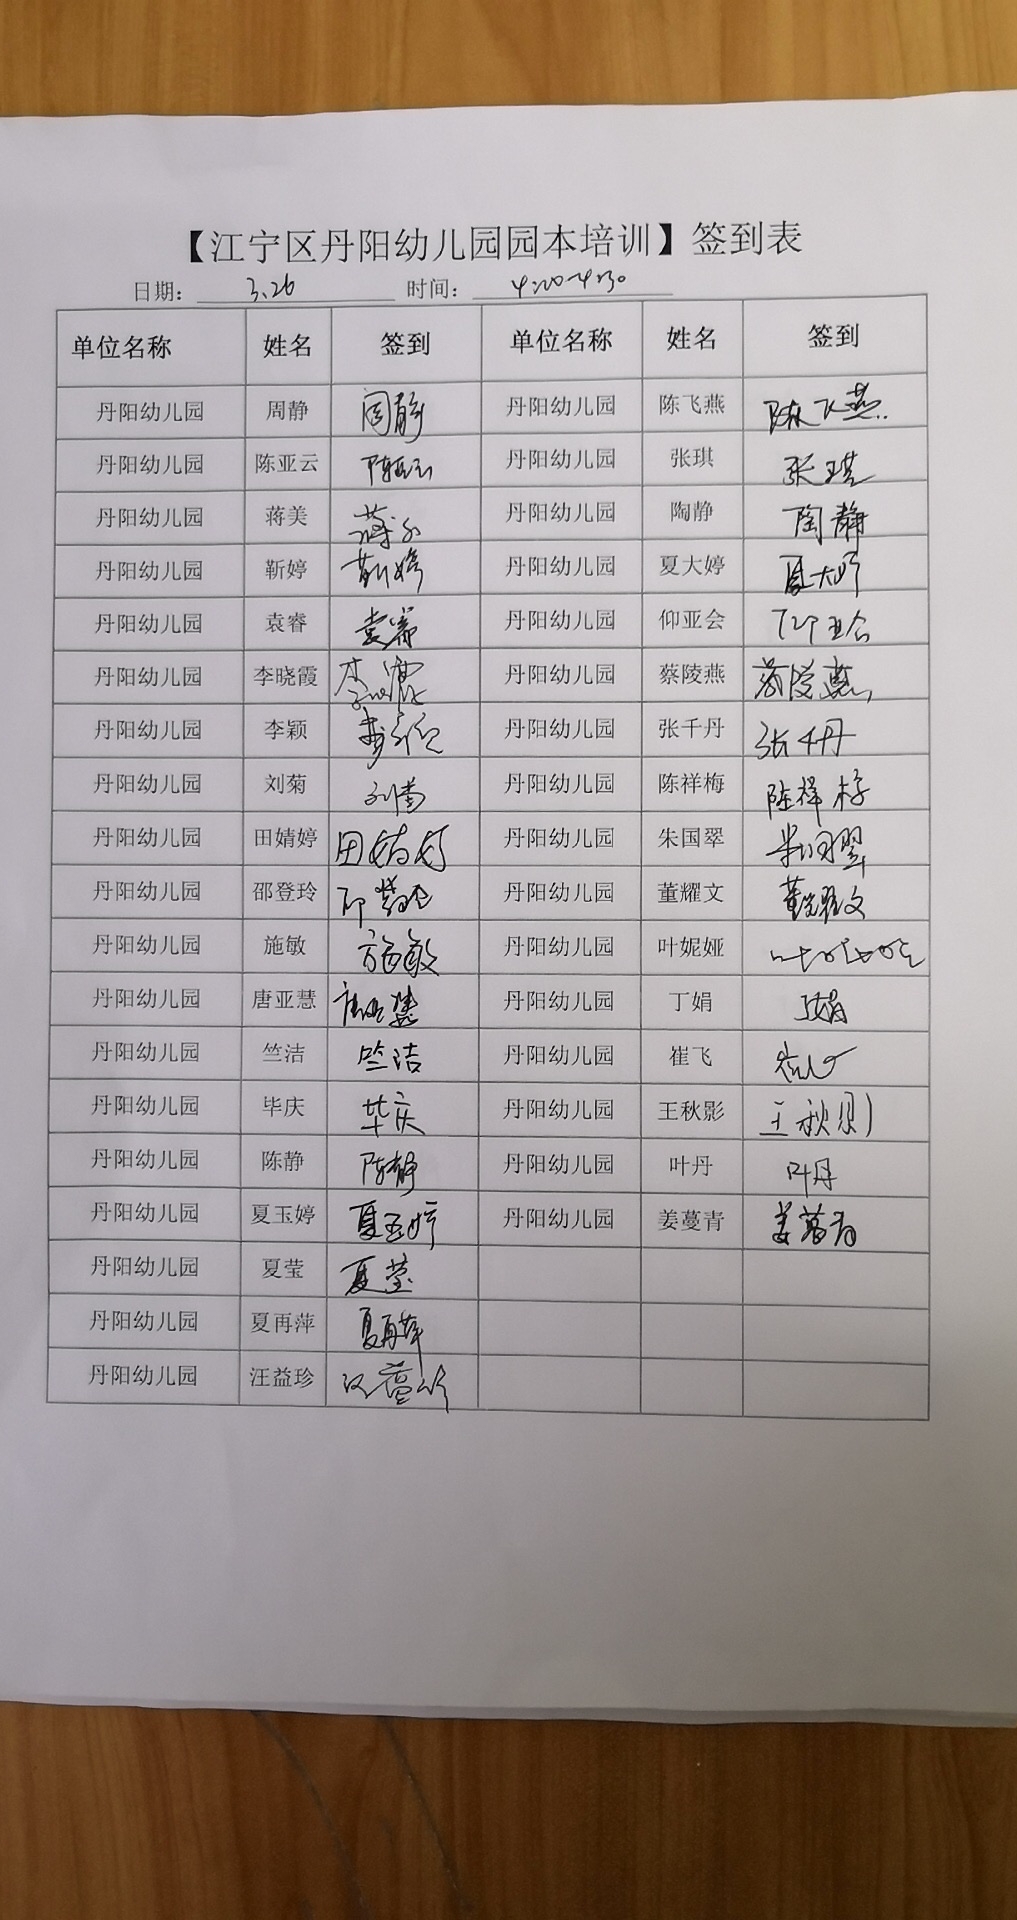 【江宁区丹阳幼儿园园本培训】签到表
日期： 3.26 时间： 4:00-4:30
单位名称 姓名 签到 单位名称 姓名 签到
丹阳幼儿园 周静 周静 丹阳幼儿园 陈飞燕 陈飞燕
丹阳幼儿园 陈亚云 陈亚云 丹阳幼儿园 张琪 张琪
丹阳幼儿园 蒋美 蒋美 丹阳幼儿园 陶静 陶静
丹阳幼儿园 靳婷 靳婷 丹阳幼儿园 夏大婷 夏大婷
丹阳幼儿园 袁睿 袁睿 丹阳幼儿园 仰亚会 仰亚会
丹阳幼儿园 李晓霞 李晓霞 丹阳幼儿园 蔡陵燕 蔡陵燕
丹阳幼儿园 李颖 李颖 丹阳幼儿园 张千丹 张千丹
丹阳幼儿园 刘菊 刘菊 丹阳幼儿园 陈祥梅 陈祥梅
丹阳幼儿园 田婧婷 田婧婷 丹阳幼儿园 朱国翠 朱国翠
丹阳幼儿园 邵登玲 邵登玲 丹阳幼儿园 董耀文 董耀文
丹阳幼儿园 施敏 施敏 丹阳幼儿园 叶妮娅 叶妮娅
丹阳幼儿园 唐亚慧 唐亚慧 丹阳幼儿园 丁娟 丁娟
丹阳幼儿园 竺洁 竺洁 丹阳幼儿园 崔飞 崔飞
丹阳幼儿园 毕庆 毕庆 丹阳幼儿园 王秋影 王秋影
丹阳幼儿园 陈静 陈静 丹阳幼儿园 叶丹 叶丹
丹阳幼儿园 夏玉婷 夏玉婷 丹阳幼儿园 姜蔓青 姜蔓青
丹阳幼儿园 夏莹 夏莹
丹阳幼儿园 夏再萍 夏再萍
丹阳幼儿园 汪益珍 汪益珍